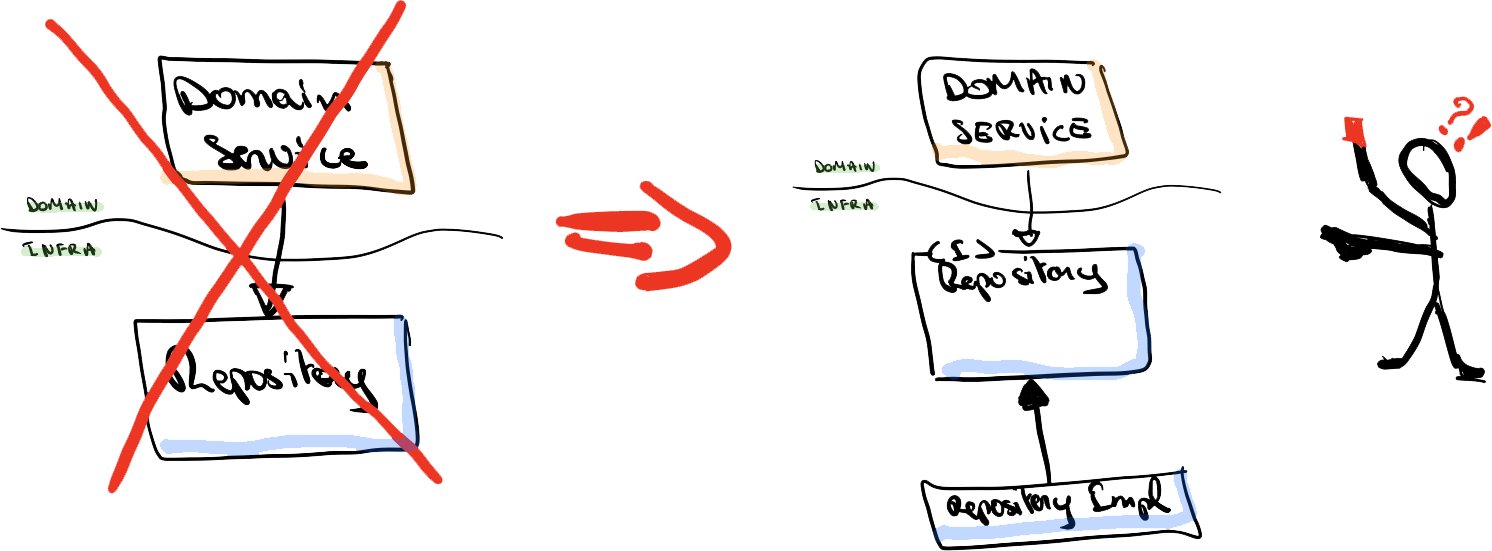 Domain
Service
DOMAIN
INFRA
Repository
DOMAIN
SERVICE
DOMAIN
INFRA
(I)
Repository
Repository Impl
?!